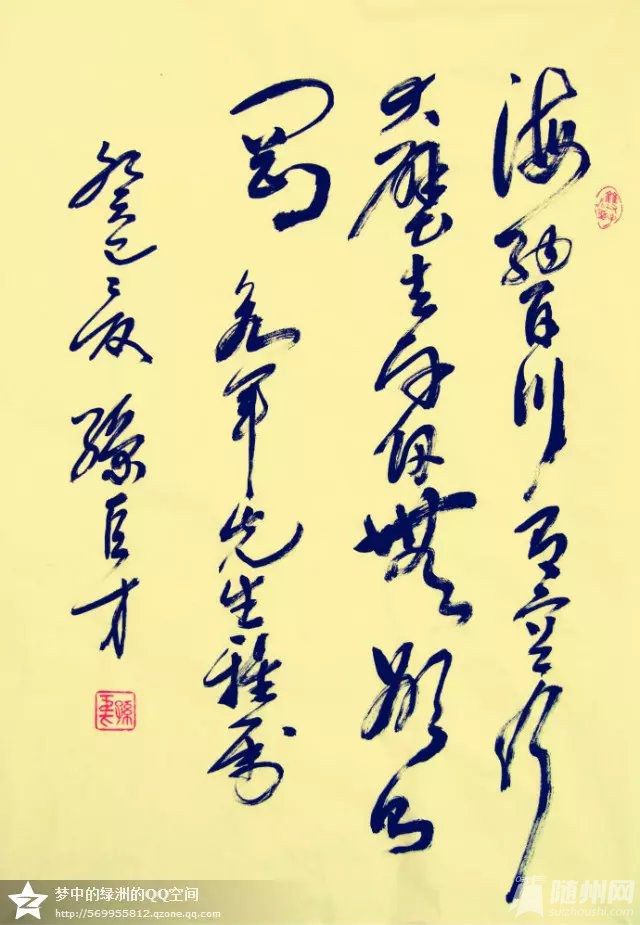 海納百川有容乃
大壁立千仞無欲則
剛 先生雅属
癸巳之夏 孫 才
梦中的绿洲的QQ空间
http://569955812.qzone.qq.com
随州网
suizhoushi.com